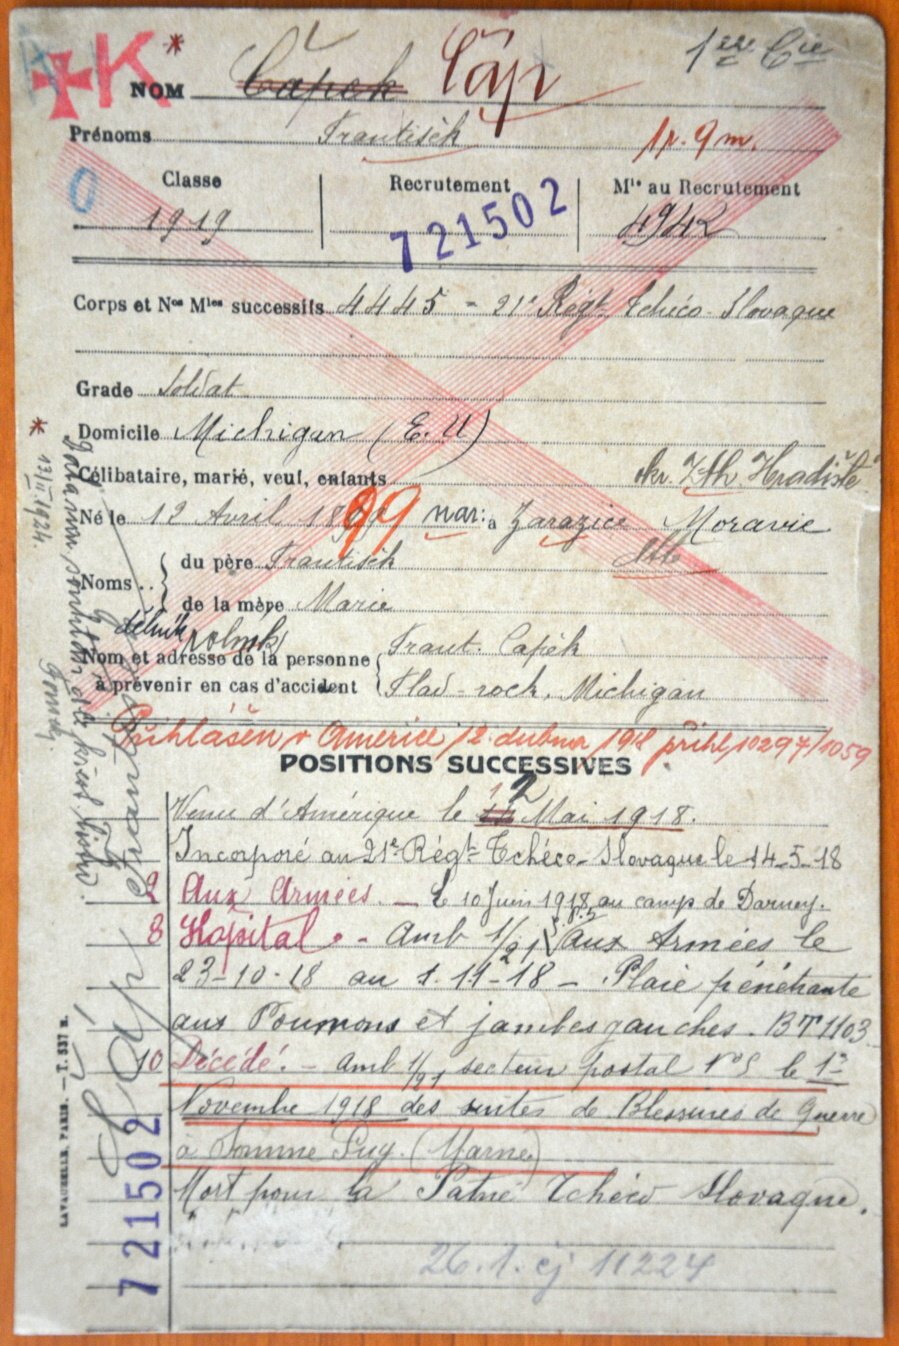 K *
1ère Cie
NOM Čapek Čáp
Prénoms Frantisèk
1r. 9m.
0
Classe Recrutement Mle au Recrutement
1919 721502 4942
Corps et Nos Mles successifs 4445 = 21e Régt Tchéco-Slovaque
Grade Soldat
Domicile Michigan (E. U)
Célibataire, marié, veuf, enfants
okr. Hradiště
Né le 12 Avril 1899 nar: à Zarazice Moravie
Noms .. du père Frantisèk
de la mère Marie
dělník rolník
Nom et adresse de la personne Frant. Capèk
à prévenir en cas d'accident Flad-rock, Michigan
Přihlášen v Americe 12. dubna 1918 přihl. 10297/1059
POSITIONS SUCCESSIVES
Venu d'Amérique le 12 Mai 1918.
Incorporé au 21e Régt Tchéco-Slovaque le 14-5-18
2 Aux Armées. — le 10 Juin 1918 au camp de Darney.
8 Hôpital. - Amb 1/21 Aux Armées le
23-10-18 au 1.11-18 - Plaie pénétrante
aux Poumons et jambes gauches. BT 1103
10 Décédé. - Amb 1/21 secteur postal No 5 le 1er
Novembre 1918 des suites de Blessures de Guerre
à Somme Puy. (Marne)
Mort pour la Patrie Tchéco Slovaque.
26.1. čj 11224
* 13/II 1924.
Čáp František
721502
LAVAUZELLE, PARIS. — T. 537 R.